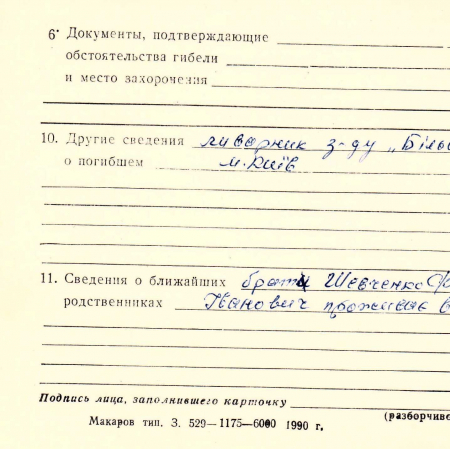 6· Документы, подтверждающие
обстоятельства гибели
и место захоронения
10. Другие сведения ливарник з-ду „Біль
о погибшем м. Київ
11. Сведения о ближайших брат Шевченко
родственниках Іванович проживає в
Подпись лица, заполнившего карточку
(разборчиво
Макаров тип. З. 529—1175—6000 1990 г.